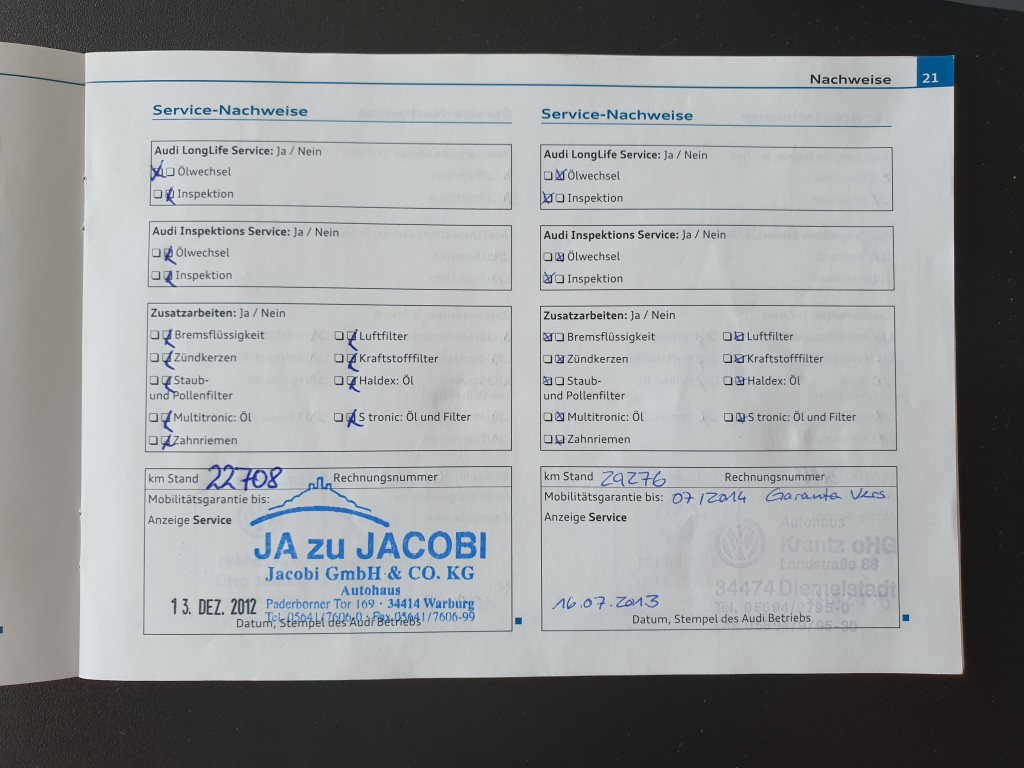 Nachweise 21
Service-Nachweise
Audi LongLife Service: Ja / Nein
Ölwechsel
Inspektion
Audi Inspektions Service: Ja / Nein
Ölwechsel
Inspektion
Zusatzarbeiten: Ja / Nein
Bremsflüssigkeit Luftfilter
Zündkerzen Kraftstofffilter
Staub- Haldex: Öl
und Pollenfilter
Multitronic: Öl S tronic: Öl und Filter
Zahnriemen
km Stand 22708 Rechnungsnummer
Mobilitätsgarantie bis:
Anzeige Service
JA zu JACOBI
Jacobi GmbH & CO. KG
Autohaus
13. DEZ. 2012 Paderborner Tor 169 · 34414 Warburg
Tel. 05641/7606-0 · Fax 05641/7606-99
Datum, Stempel des Audi Betriebs
Service-Nachweise
Audi LongLife Service: Ja / Nein
Ölwechsel
Inspektion
Audi Inspektions Service: Ja / Nein
Ölwechsel
Inspektion
Zusatzarbeiten: Ja / Nein
Bremsflüssigkeit Luftfilter
Zündkerzen Kraftstofffilter
Staub- Haldex: Öl
und Pollenfilter
Multitronic: Öl S tronic: Öl und Filter
Zahnriemen
km Stand 29276 Rechnungsnummer
Mobilitätsgarantie bis: 07/2014 Garanta Vers.
Anzeige Service
Autohaus
Krantz oHG
Landstraße 88
34474 Diemelstadt
16.07.2013 Tel. 05694/9795-0
Datum, Stempel des Audi Betriebs